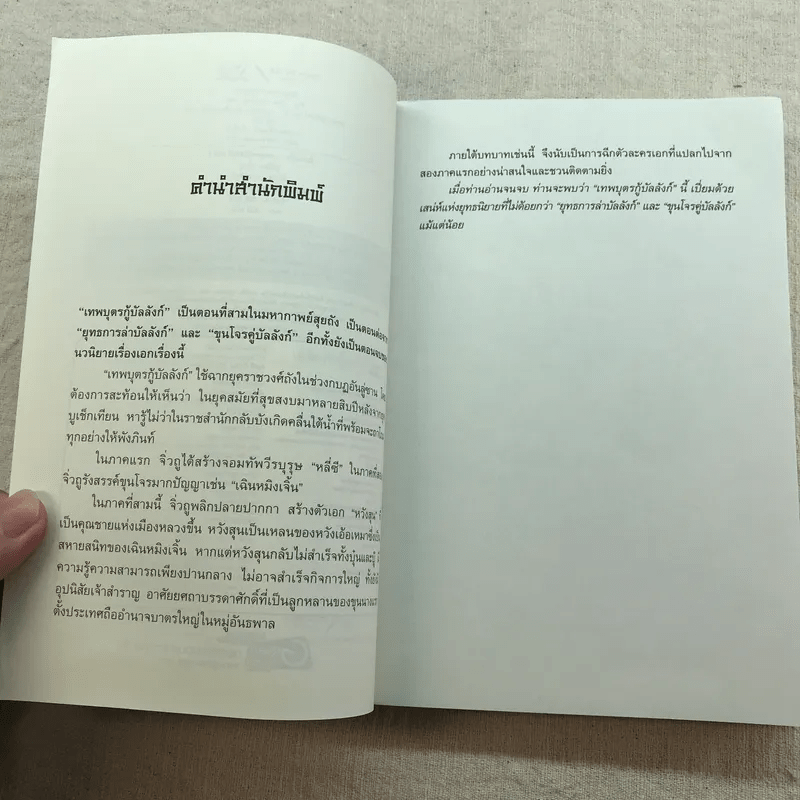 คำนำสำนักพิมพ์
“เทพบุตรกู้บัลลังก์” เป็นตอนที่สามในมหากาพย์สุยถัง เป็นตอนต่อจาก
“ยุทธการล่าบัลลังก์” และ “ขุนโจรคู่บัลลังก์” อีกทั้งยังเป็นตอนจบของ
นวนิยายเรื่องเอกเรื่องนี้
“เทพบุตรกู้บัลลังก์” ใช้ฉากยุคราชวงศ์ถังในช่วงกบฏอันลู่ซาน
ต้องการสะท้อนให้เห็นว่า ในยุคสมัยที่สุขสงบมาหลายสิบปีหลังจาก
บูเช็กเทียน หารู้ไม่ว่าในราชสำนักกลับบังเกิดคลื่นใต้น้ำที่พร้อมจะ
ทุกอย่างให้พังภินท์
ในภาคแรก จิ่วถูได้สร้างจอมทัพวีรบุรุษ “หลี่ซี” ในภาคที่
จิ่วถูรังสรรค์ขุนโจรมากปัญญาเช่น “เฉินหมิงเจิ้น”
ในภาคที่สามนี้ จิ่วถูพลิกปลายปากกา สร้างตัวเอก “หวังสุน”
เป็นคุณชายแห่งเมืองหลวงขึ้น หวังสุนเป็นเหลนของหวังเอ้อเหมาซึ่งเป็น
สหายสนิทของเฉินหมิงเจิ้น หากแต่หวังสุนกลับไม่สำเร็จทั้งบุ๋นและบู๊
ความรู้ความสามารถเพียงปานกลาง ไม่อาจสำเร็จกิจการใหญ่ ทั้งยังมี
อุปนิสัยเจ้าสำราญ อาศัยยศถาบรรดาศักดิ์ที่เป็นลูกหลานของขุนนาง
ตั้งประเทศถืออำนาจบาตรใหญ่ในหมู่อันธพาล
ภายใต้บทบาทเช่นนี้ จึงนับเป็นการฉีกตัวละครเอกที่แปลกไปจาก
สองภาคแรกอย่างน่าสนใจและชวนติดตามยิ่ง
เมื่อท่านอ่านจนจบ ท่านจะพบว่า “เทพบุตรกู้บัลลังก์” นี้ เปี่ยมด้วย
เสน่ห์แห่งยุทธนิยายที่ไม่ด้อยกว่า “ยุทธการล่าบัลลังก์” และ “ขุนโจรคู่บัลลังก์”
แม้แต่น้อย